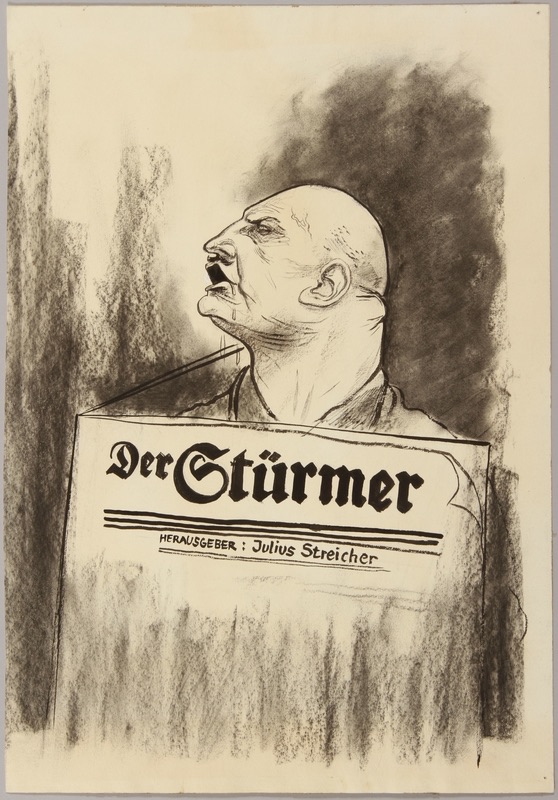 Der Stürmer
HERAUSGEBER: Julius Streicher